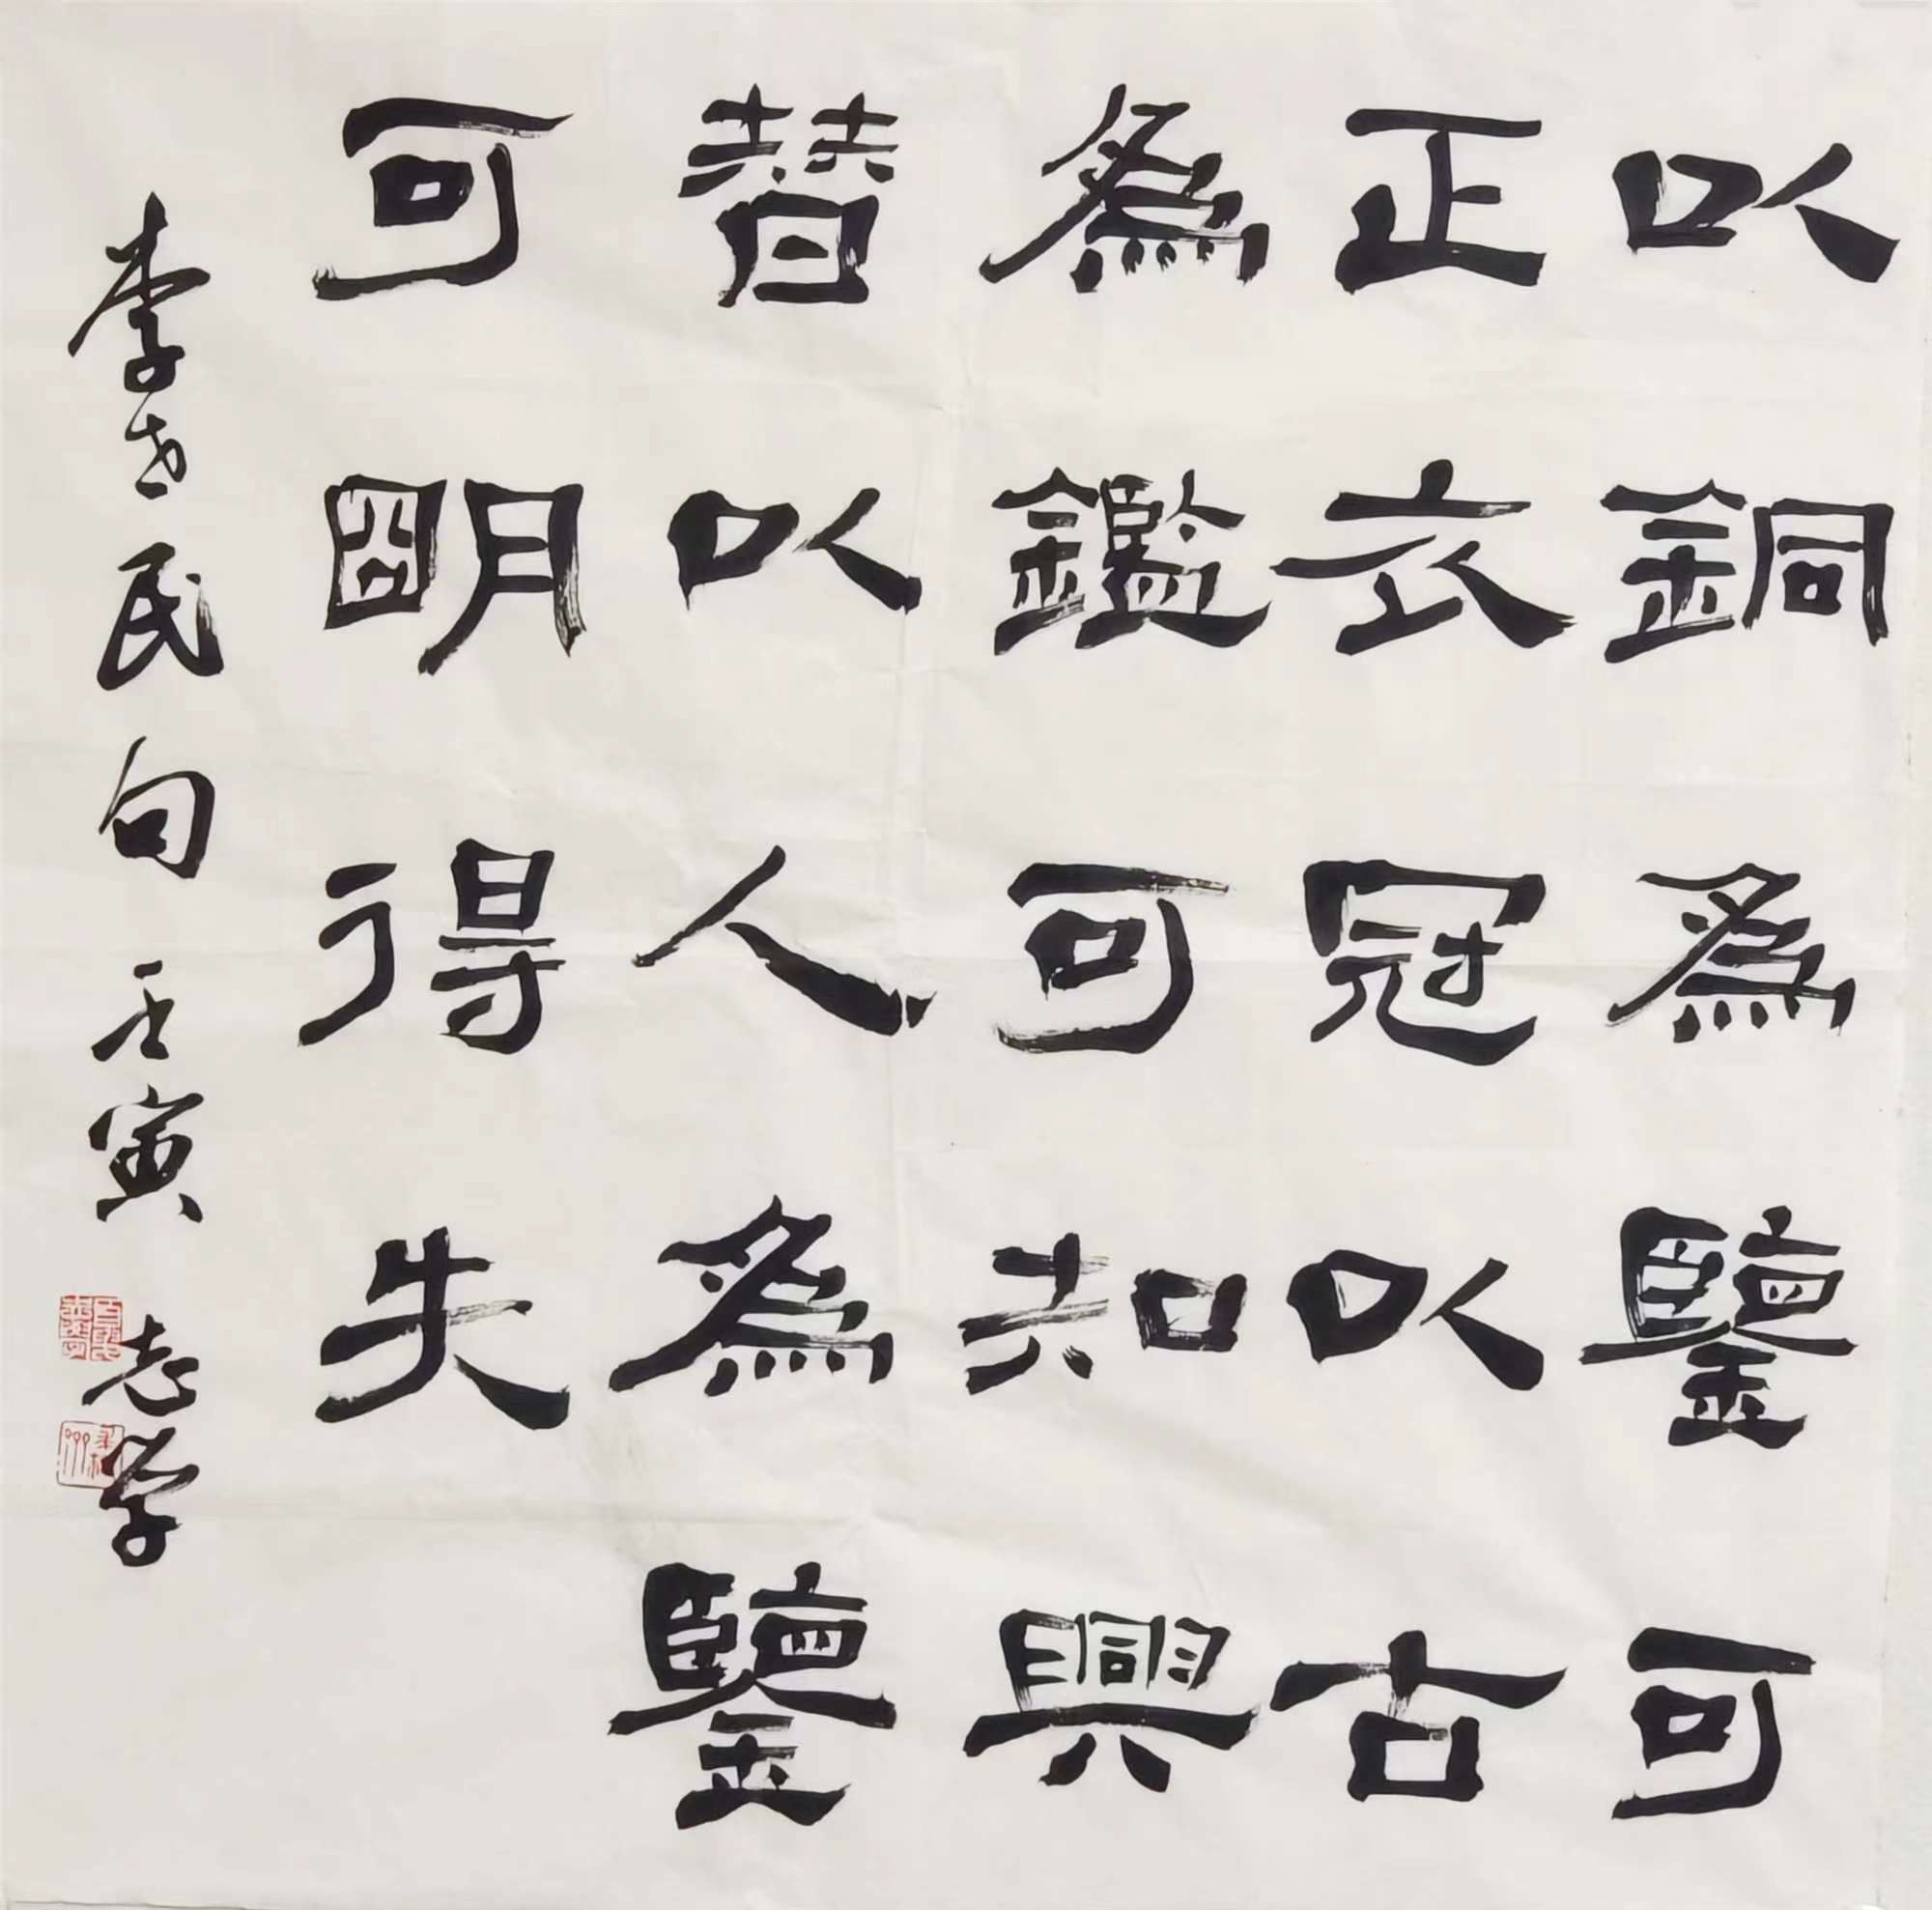 以銅為鑒可
正衣冠以古
為鑑可知興
替以人為鑒
可明得失
李世民句壬寅志学